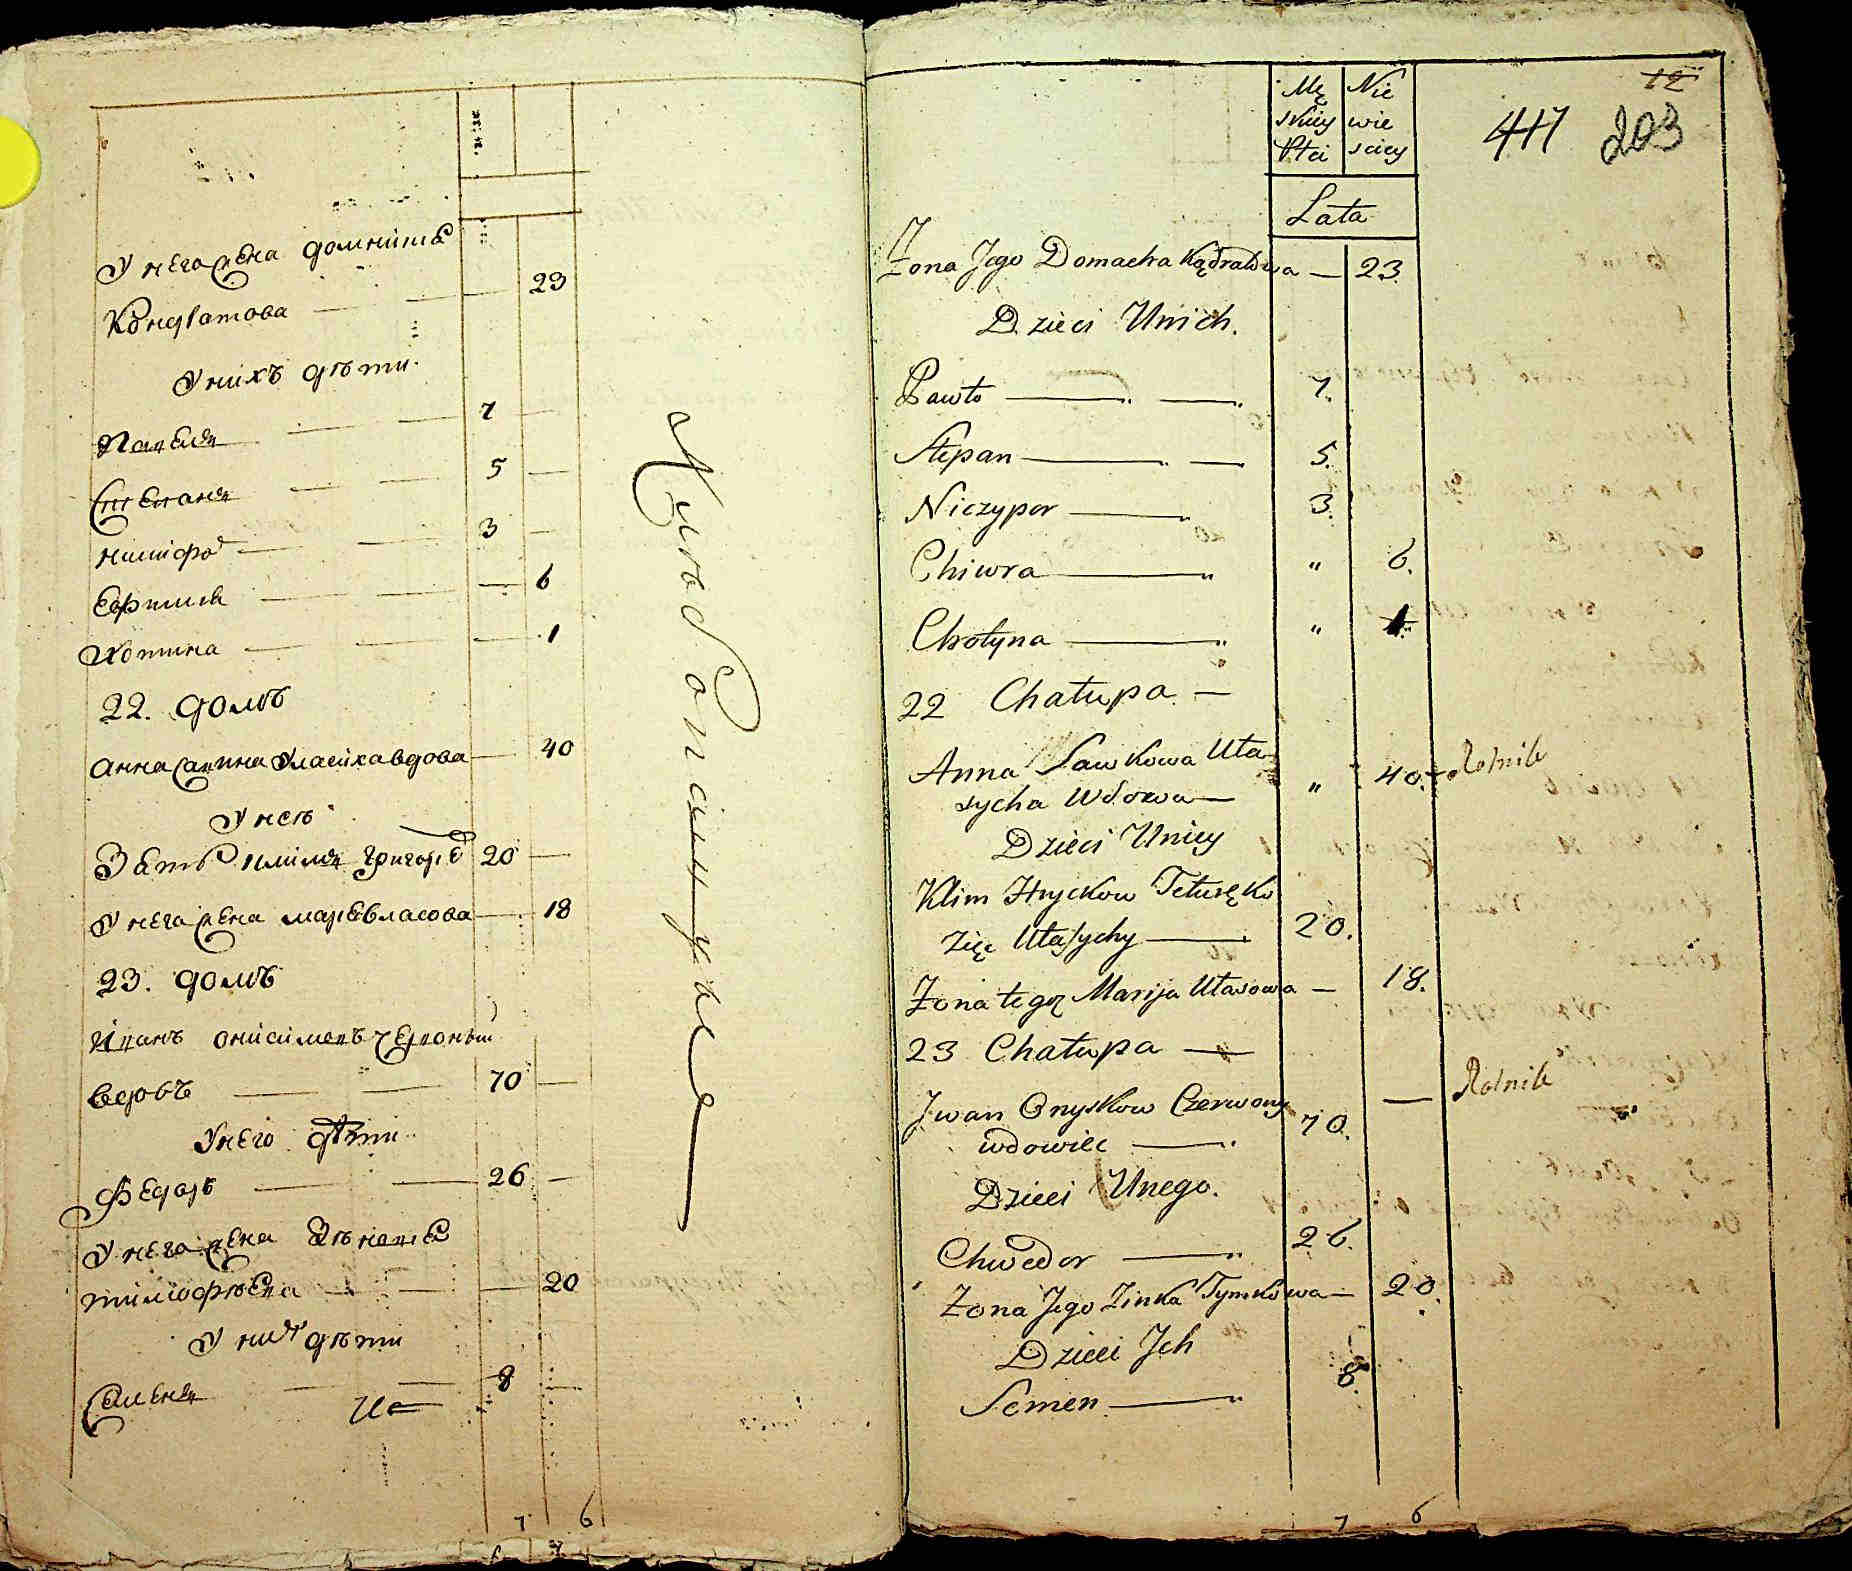 У него жена домникiя
23
Кондратова
У нихъ дѣти
Павелъ 7
Степанъ 5
никифоръ 3
Ефимия 6
Хотина 1
22. домъ
Анна Савина Уласиха вдова 40
У неѣ
Зять климъ григорьевъ 20
У него жена марья власова 18
23. домъ
Иванъ онисимовъ червоный
вдовъ 70
У него дѣти
Федоръ 26
У него жена Зѣновия
тимофѣева 20
У нихъ дѣти
Семенъ 8
7 6
Mę Nie
skiey wie
Płci sciey
12
417 203
Lata
Żona Jego Domacha Kądratowa — 23.
Dzieci Unich.
Pawło 7.
Stepan 5.
Niczypor 3.
Chiwra " 6.
Chotyna " 1.
22 Chałupa —
Anna Sawkowa Uła
sycha Wdowa " 40. Rolnik
Dzieci Uniey
Klim Hryckow Teturęko
Zięc Ułasychy 20.
Żona tegoż Marija Ułasowa — 18.
23 Chałupa —
Jwan Onyskow Czerwony — Rolnik
wdowiec 70. "
Dzieci Unego.
Chwedor 26.
Żona Jego Zinka Tymkowa — 20.
Dzieci Jch
Semen 8.
7 6